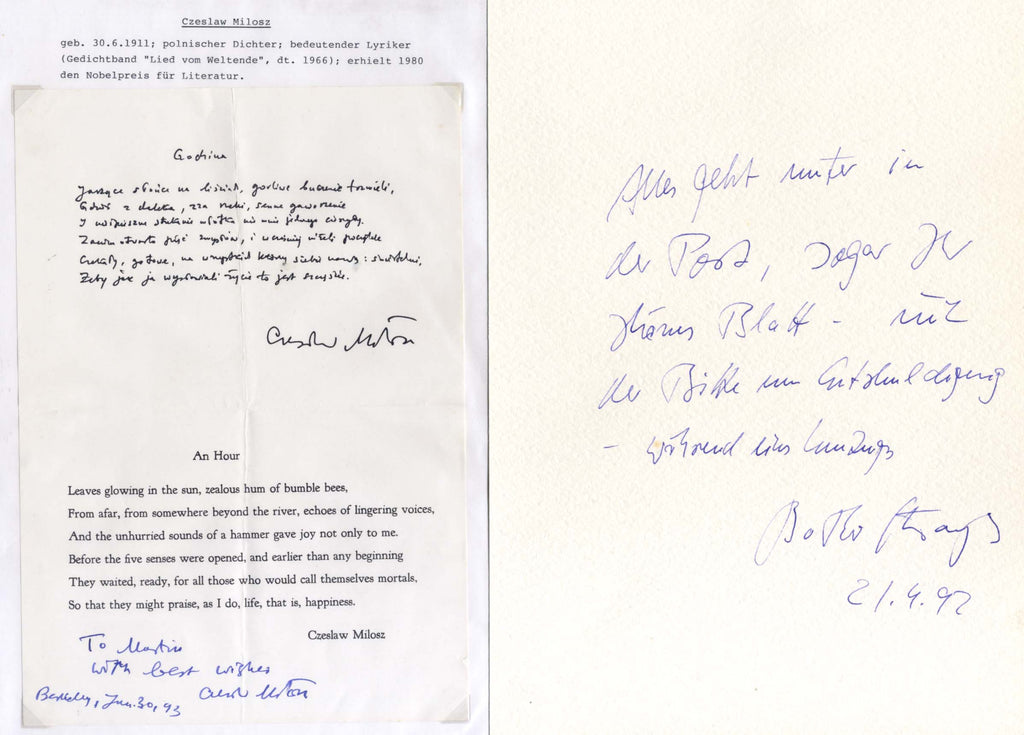 Czeslaw Milosz
geb. 30.6.1911; polnischer Dichter; bedeutender Lyriker
(Gedichtband "Lied vom Weltende", dt. 1966); erhielt 1980
den Nobelpreis für Literatur.
Godzina
na liściach, gorliwe buczenie trzmieli,
z daleka, zza rzeki, senne gaworzenie
I stukanie młotka nie mnie jednego
Zanim otwarto pięć zmysłów, i
Czekały, gotowe, na wszystkich którzy siebie nazwą: śmiertelni,
Żeby jak ja wysławiali życie to jest szczęście.
Czesław Miłosz
An Hour
Leaves glowing in the sun, zealous hum of bumble bees,
From afar, from somewhere beyond the river, echoes of lingering voices,
And the unhurried sounds of a hammer gave joy not only to me.
Before the five senses were opened, and earlier than any beginning
They waited, ready, for all those who would call themselves mortals,
So that they might praise, as I do, life, that is, happiness.
Czeslaw Milosz
To Martin
with best wishes
Czesław Miłosz
Berkeley, Jan. 30, 93
Alles geht unter in
der Post, sogar Ihr
Blatt – mit
der Bitte um Entschuldigung
– während eines Umzugs
Botho Strauß
21.4.92